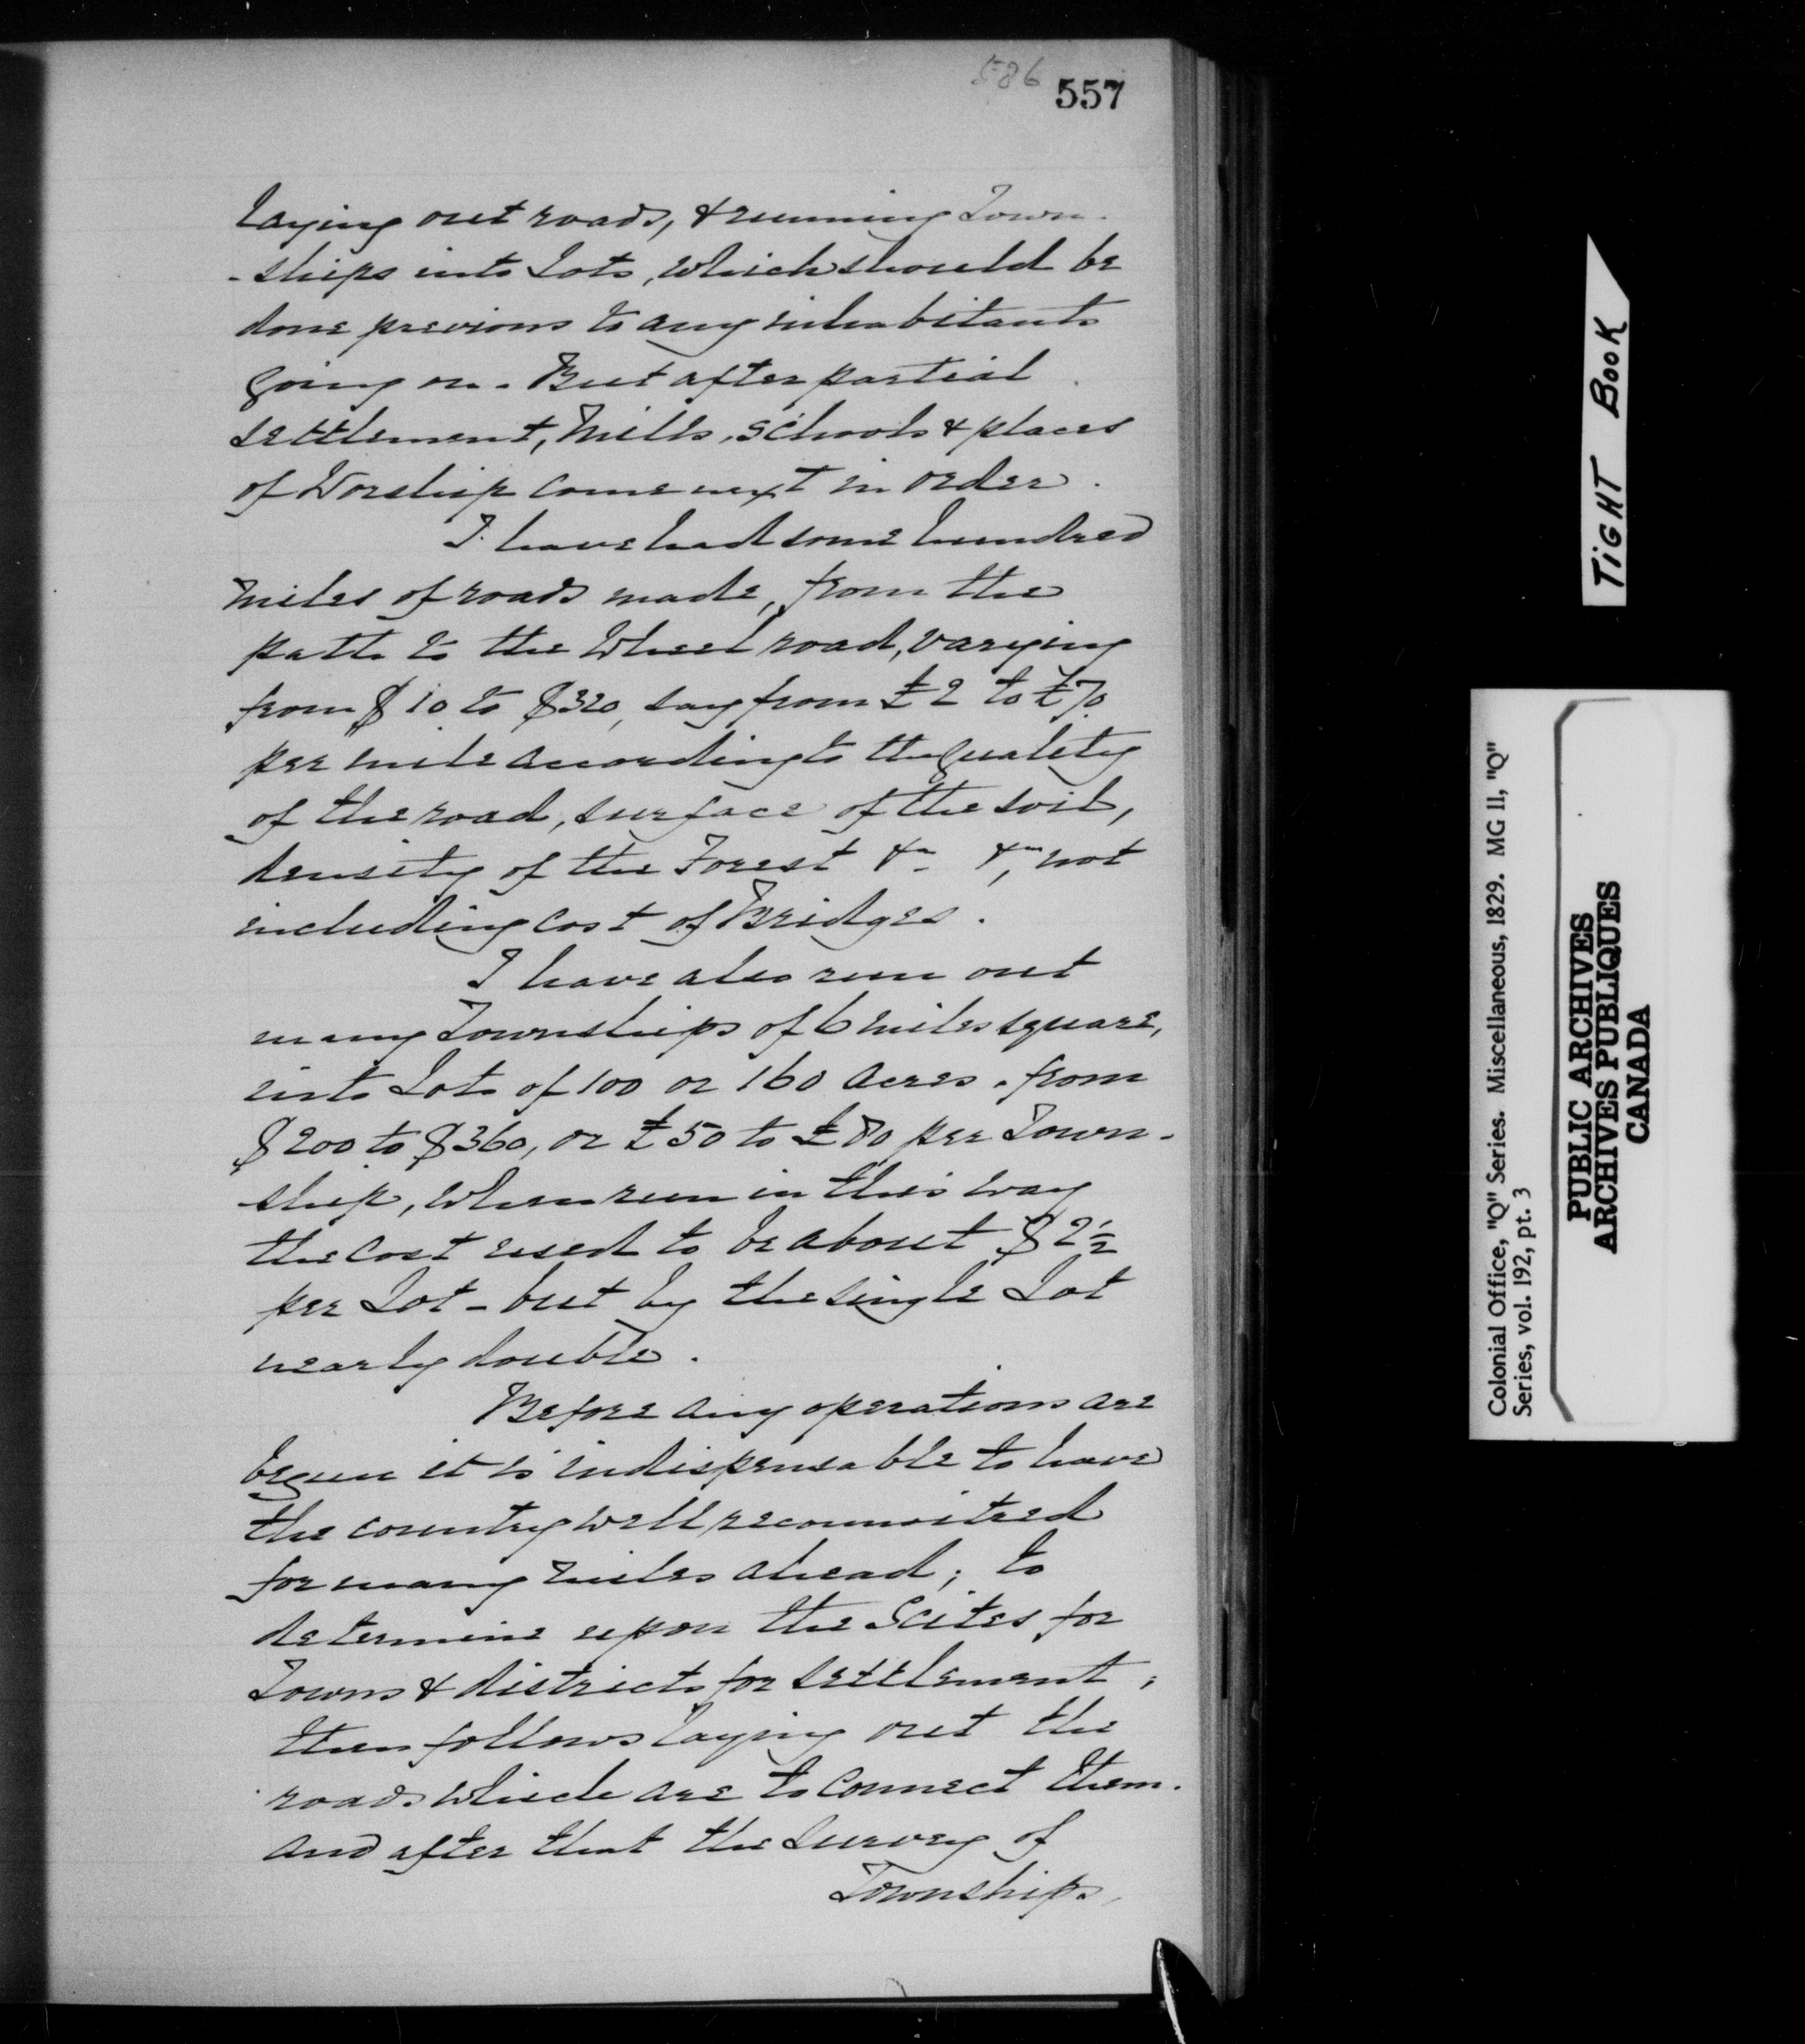 586 557
laying out roads, & running Town-
-ships into Lots, which should be
done previous to any inhabitants
going on. But after partial
settlement, Mills, Schools & places
of Worship come next in order.
I have had some hundred
miles of roads made, from the
path to the Wheel road, varying
from $10 to $320, say from £2 to £70
per mile according to the quality
of the road, surface of the soil,
density of the Forest &c &c, not
including cost of Bridges.
I have also run out
many Townships of 6 miles square,
into Lots of 100 or 160 acres. from
$200 to $360, or £50 to £80 per Town-
ship, when run in this way
the cost used to be about $2½
per Lot - but by the single Lot
nearly double.
Before any operations are
begun it is indispensable to have
the country well reconnoitred
for many miles ahead; to
determine upon the Scites for
Towns & districts for settlement;
then follows laying out the
roads which are to connect them.
and after that the survey of
Townships,
TIGHT BOOK
Colonial Office, "Q" Series. Miscellaneous, 1829. MG 11, "Q"
Series, vol. 192, pt. 3
PUBLIC ARCHIVES
ARCHIVES PUBLIQUES
CANADA